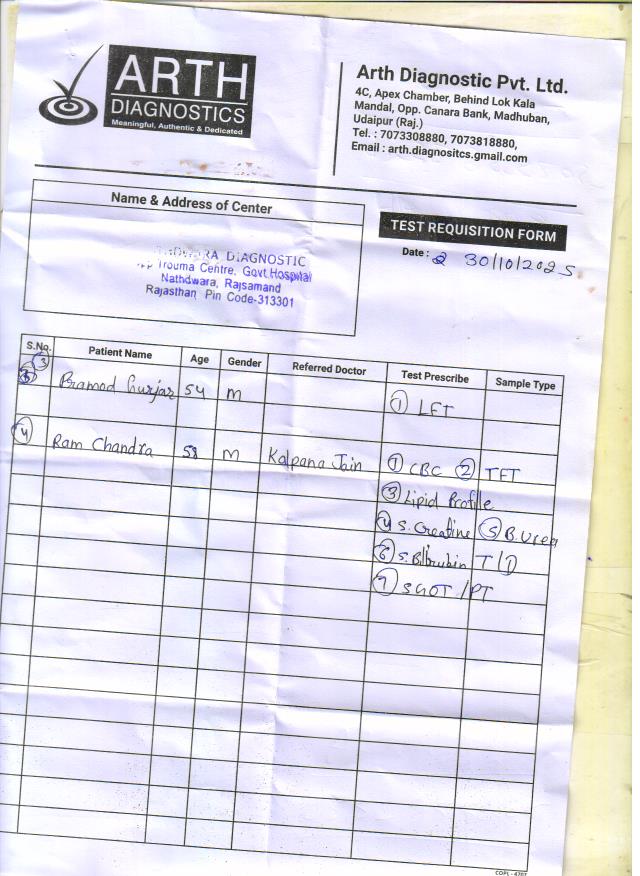 ARTH
DIAGNOSTICS
Meaningful, Authentic & Dedicated
Arth Diagnostic Pvt. Ltd.
4C, Apex Chamber, Behind Lok Kala
Mandal, Opp. Canara Bank, Madhuban,
Udaipur (Raj.)
Tel. : 7073308880, 7073818880,
Email : arth.diagnositcs.gmail.com
Name & Address of Center
DIAGNOSTIC
Trouma Centre, Govt. Hospital
Nathdwara, Rajsamand
Rajasthan Pin Code-313301
TEST REQUISITION FORM
Date : 30/10/2025
S.No. Patient Name Age Gender Referred Doctor Test Prescribe Sample Type
3 Pramod Gurjar 54 M 1 LFT
4 Ram Chandra 58 M Kalpana Jain 1 CBC 2 TFT
3 Lipid Profile
4 S. Creatine 5 B. Urea
6 S. Bilirubin T/D
7 SGOT/PT
COPL - 4707